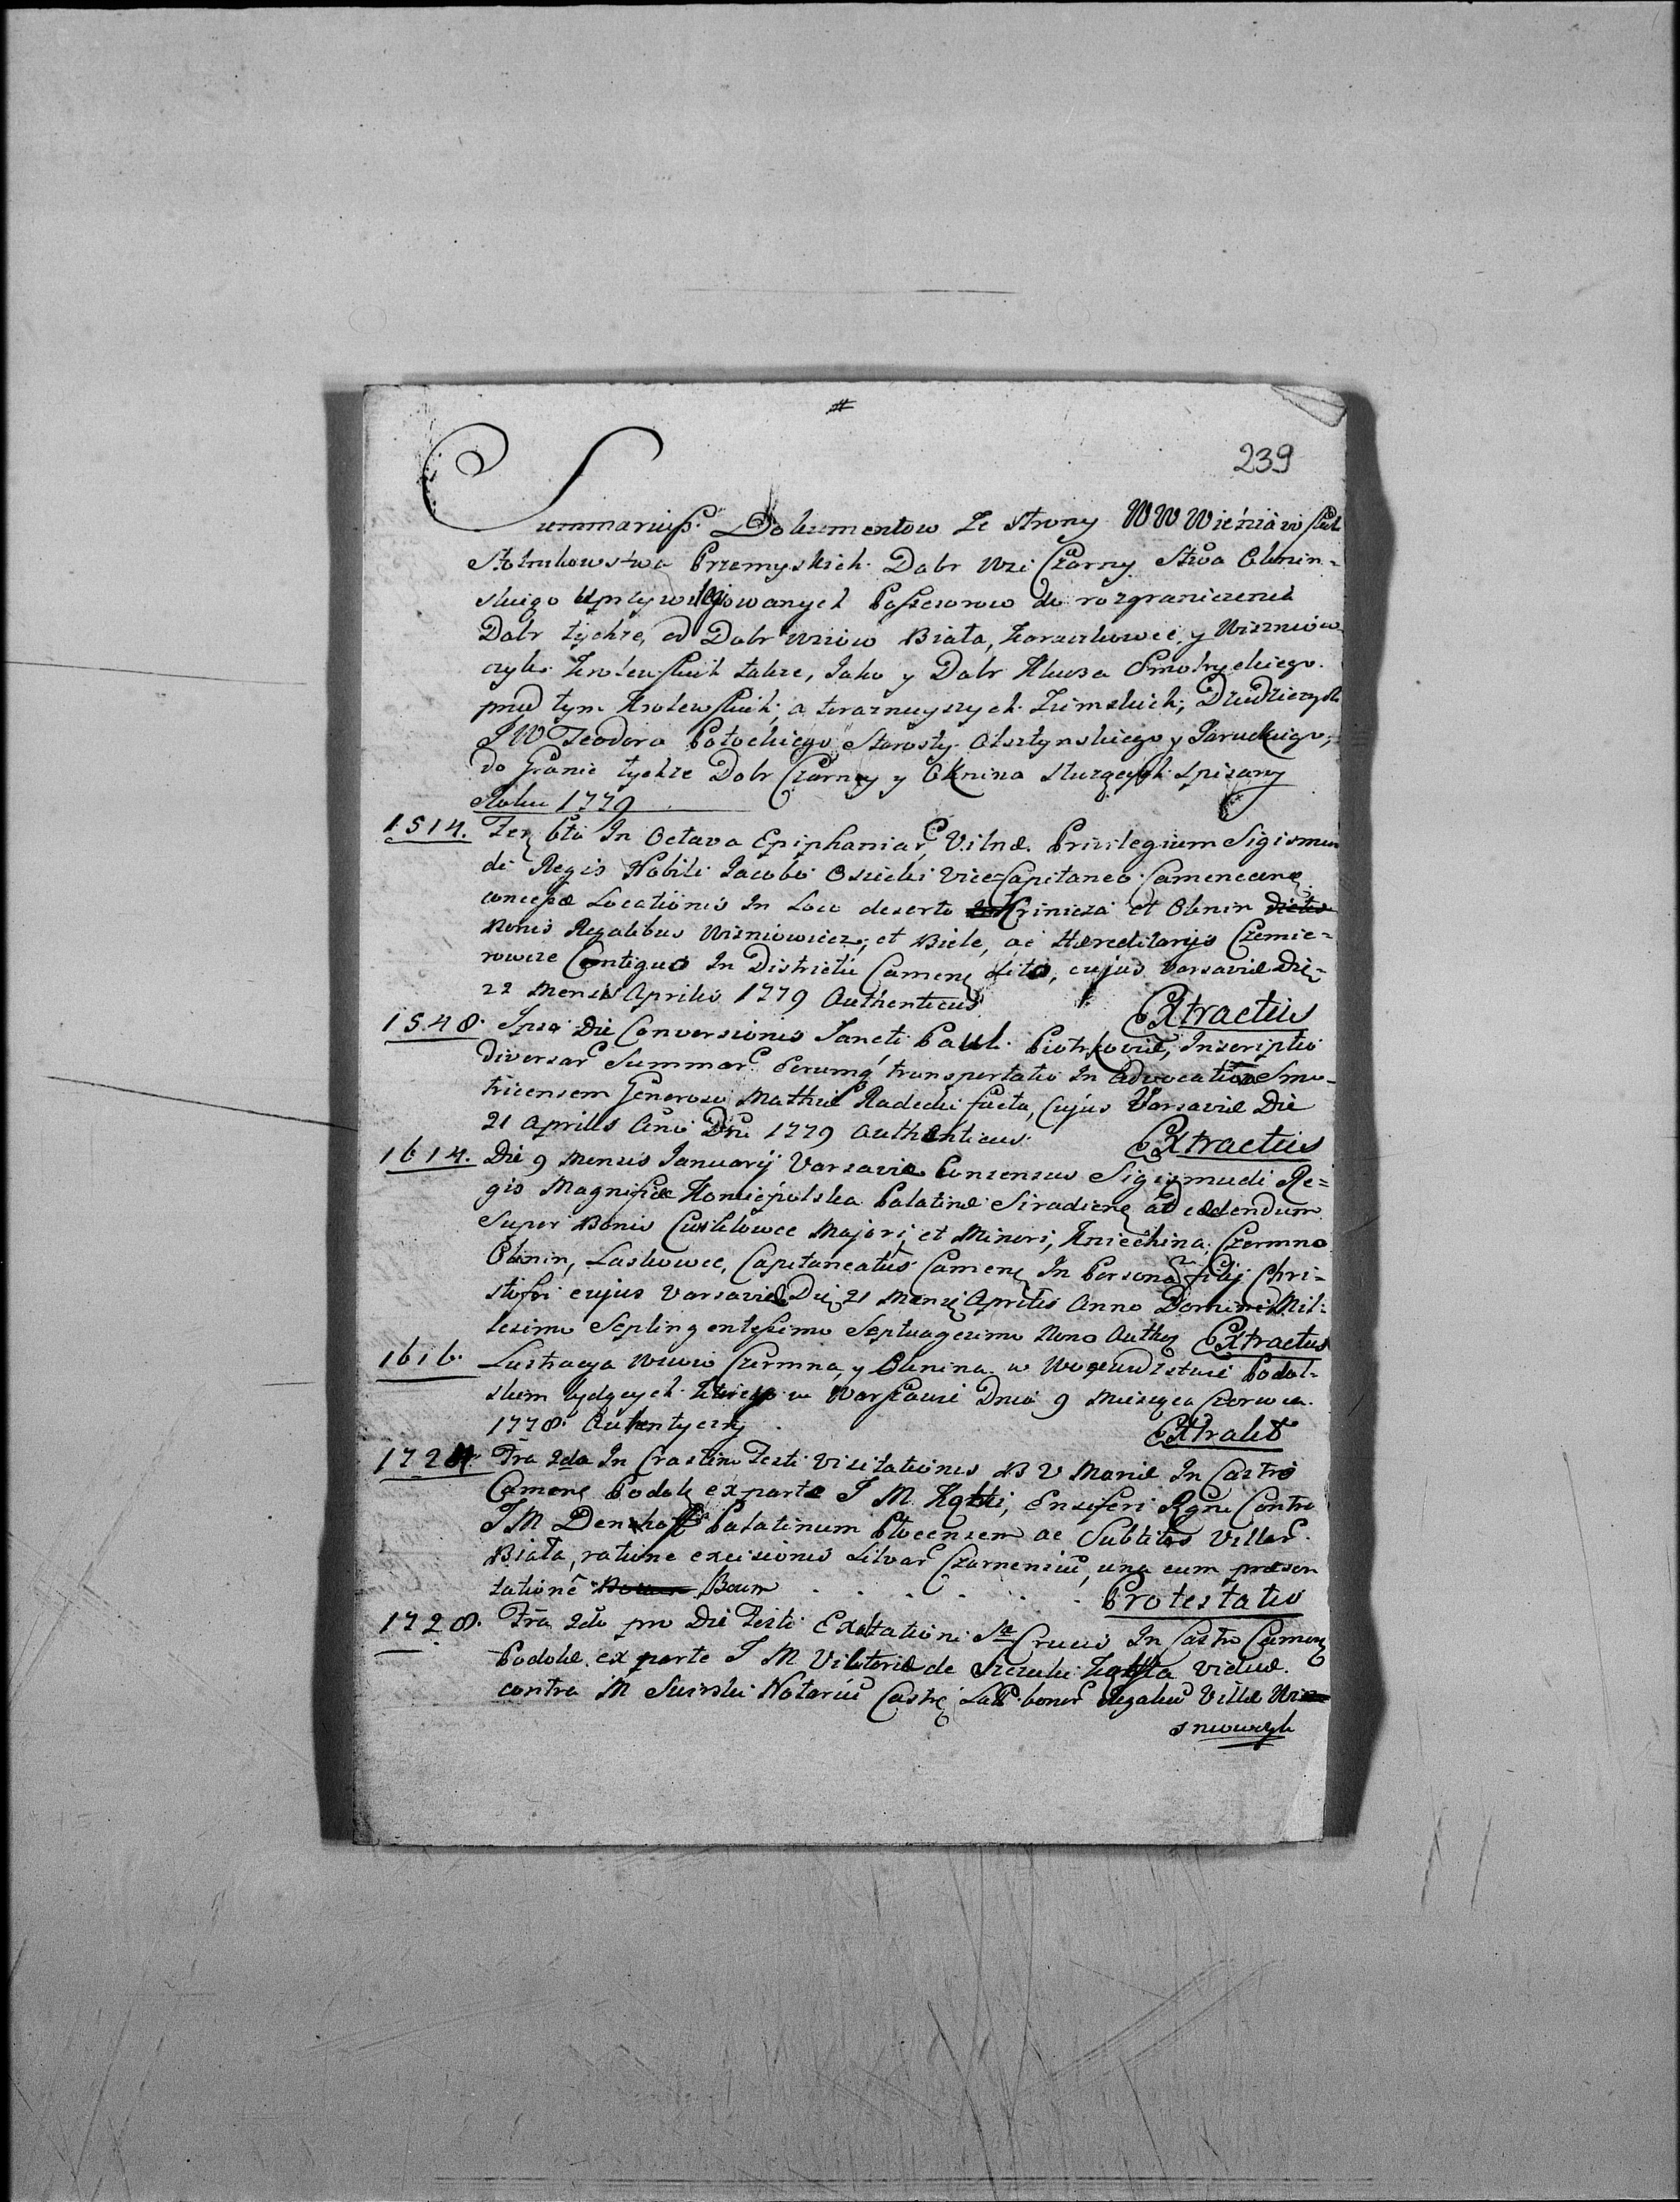 239
Summariusz Dokumentow Ze Strony WW Wieniawskich
Stolnikowstwa Przemyskich Dobr Wsi Czarny Stwa Oknin=
skiego Uprzywilejowanych Possesorow do rozgraniczenia
Dobr tychże, od Dobr Wsiow Biała, Karaczkowce y Wiszniow
czyk Krolewskich także, Jako y Dobr Klucza Smotryckiego
przed tym Krolewskich, a teraznieyszych Ziemskich, Dziedzicznych
J W Teodora Potockiego Starosty Olsztynskiego y
do Granic tychże Dobr Czarny y Oknina służących spisany
Roku 1779
1514. Fer 6ta In Octava Epiphaniar Vilnæ Privilegium Sigismun
di Regis Nobili Jacobo Osiecki Vice-Capitaneo Camenecens
concessæ Locationis In Loco deserto Krinicza et Oknin
Bonis Regalibus Wisniowiecz, et Biele, ac Hæreditarys Czemie=
rowcze Contiguo In Districtu Camene sito, cujus Varsaviæ Die
22 Mensis Aprilis 1779 Authenticus Extractus
1548. Ipso Die Conversionis Sancti Pauli Piotrkoviæ, Inscriptio
diversar Summar Earumq transportatio In Advocatiam Smo-
tricensem Generoso Mathiæ Radecki facta, Cujus Varsaviæ Die
21 Aprilis Ano Dni 1779 Authenticus Extractus
1614. Die 9 Mensis January Varsaviæ Consensus Sigismudi Re=
gis Magnificæ Koniecpolska Palatinæ Siradiens ad cedendum
Super Bonis Majori, et Minori, Kniechina, Czermno
Oknin, Laskowce, Capitaneatus Camene In Personam filij Chri=
stofori cujus Varsaviæ Die 21 Mensis Aprilis Anno Domini Mil=
lesimo Septingentesimo Septuagesimo Nono Authen Extractus
1616. Lustracya Wsiow Czermna, y Oknina w Woiewodztwie Podol=
skim będących Ktorego w Warszawie Dnia 9 Miesiąca Czerwca
1778 Autentyczny Extrakt
1724 Fria 2da In Crastino Festi Visitationis B V Mariæ In Castro
Camene Podol ex parte J M Kątski, Ensiferi Regni Contra
J M Denhoff Palatinum Plocensem ac Subditos Villar
Biała, ratione excisionis Silvar Czarneniu, una cum præsen
tatione Boum . . . . . . Protestatio
1728. Fria 2da pro Die Festi Exaltationi Stæ Crucis In Castro Camen
Podoliæ ex parte J M Viktoriæ de Szczuki Kątska Viduæ
contra M Notariu Castr bonor Regaliu Villæ Wi
sniowczyk